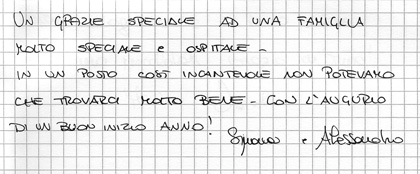 UN GRAZIE SPECIALE AD UNA FAMIGLIA
MOLTO SPECIALE E OSPITALE -
IN UN POSTO COSÌ INCANTEVOLE NON POTEVAMO
CHE TROVARCI MOLTO BENE - CON L'AUGURIO
DI UN BUON INIZIO ANNO! e Alessandro